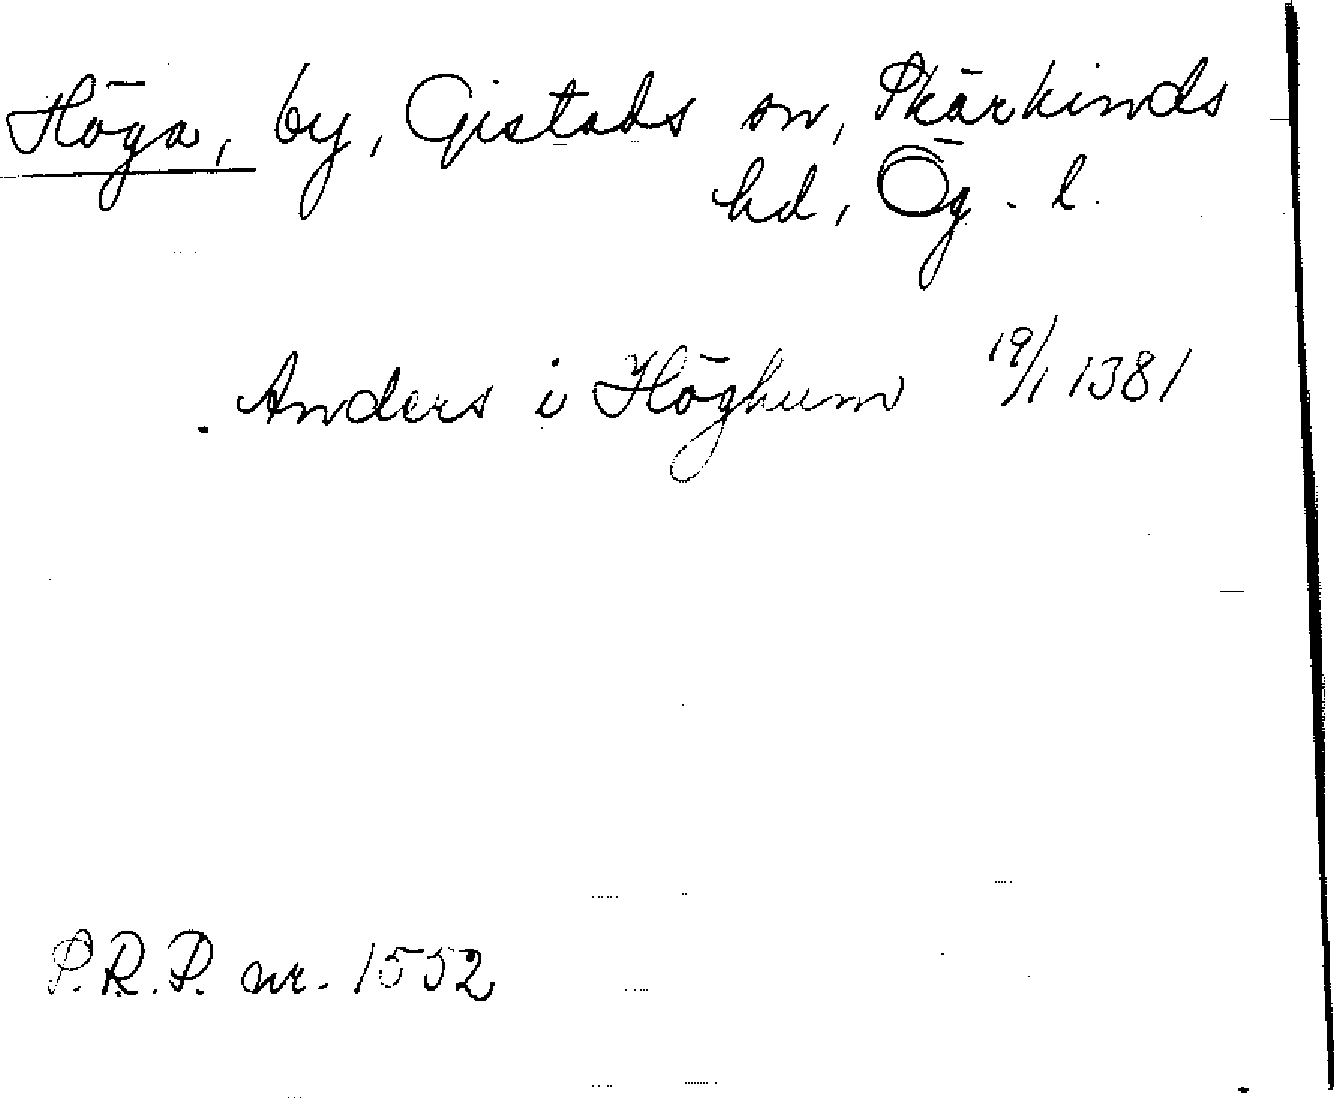 Höga, by, Gistads sn, Skärkinds
hd, Ög. l.
Anders i Höghum 19/1 1381
S.R.P. nr. 1552